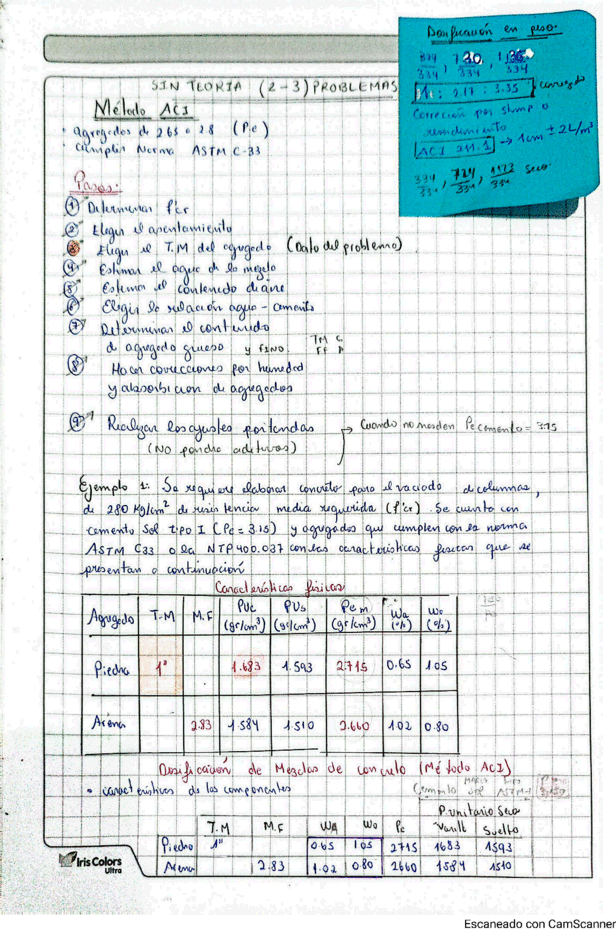 Dosificación en peso
334/334, 730/334, 1136/334
1 : 2.17 : 3.35 } corregido
Corrección por slump o
rendimiento
ACI 211.1 → 1cm ± 2L/m³
334/334, 724/334, 1123/334 seco
SIN TEORIA (2-3) PROBLEMAS
Método ACI
• agregados de 2.65 a 2.8 (Pe)
• cumplir Norma ASTM C-33
Pasos:
① Determinar f'cr
② Elegir el asentamiento
③ Elegir el T.M del agregado (Dato del problema)
④ Estimar el agua de la mezcla
⑤ Estimar el contenido de aire
⑥ Elegir la relación agua-cemento
⑦ Determinar el contenido
de agregado grueso y FINO.
⑧ Hacer correcciones por humedad
y absorbicion de agregados
⑨ Realizar los ajustes por tandas → Cuando no nos den Pe cemento = 3.15
(NO pondra aditivos)
Ejemplo 1: Se requiere elaborar concreto para el vaciado de columnas,
de 280 Kg/cm² de resistencia media requerida (f'cr). Se cuenta con
cemento Sol tipo I (Pe = 3.15) y agregados que cumplen con la norma
ASTM C33 o la NTP 400.037 con las características físicas que se
presentan a continuación
Características físicas
Agregado T.M M.F PUc (gr/cm³) PUs (gr/cm³) Pem (gr/cm³) Wa (%) Wo (%)
Piedra 1" 1.683 1.593 2.715 0.65 1.05
Arena 2.83 1.584 1.510 2.660 1.02 0.80
Dosificación de Mezclas de concreto (Método ACI)
• características de los componentes
MARCA TIPO
Cemento Sol ASTM-I
P. unitario Seco
T.M M.F WA Wo Pe Varill Suelto
Piedra 1" 0.65 1.05 2715 1683 1593
Arena 2.83 1.02 0.80 2660 1584 1510
Iris Colors
Ultra
Escaneado con CamScanner